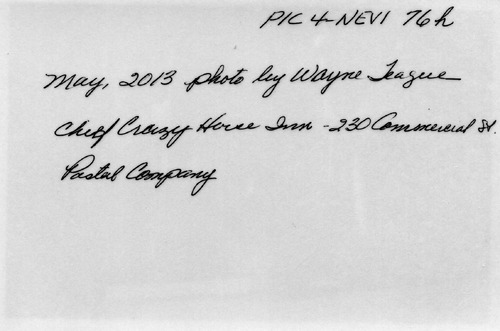 PIC 4-NEVI 76h
May, 2013 photo by Wayne Teague
Chief Crazy Horse Inn - 230 Commercial St.
Postal Company